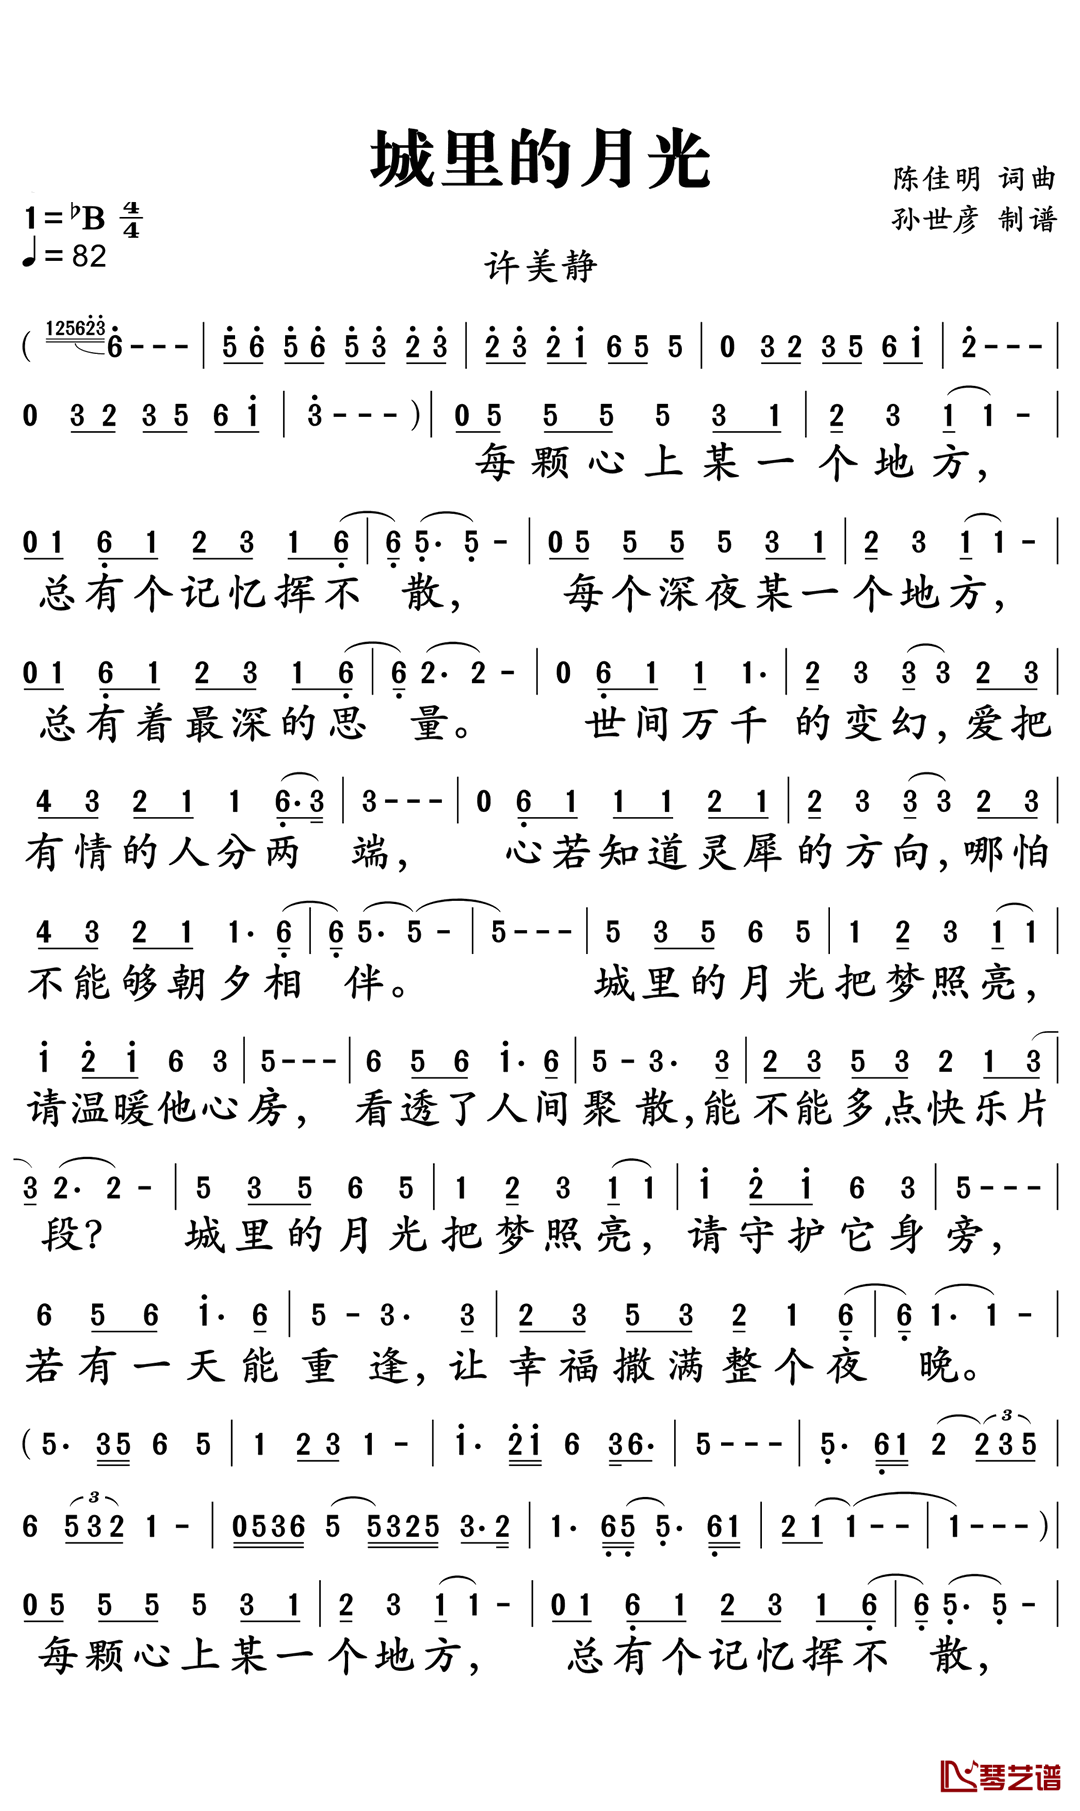 城里的月光
陈佳明 词曲
1=♭B 4/4
孙世彦 制谱
♩=82
许美静
( 12562̇3̇ 6̇--- | 5̇6̇ 5̇6̇ 5̇3̇ 2̇3̇ | 2̇3̇ 2̇1̇ 65 5 | 0 32 35 61̇ | 2̇--- |
0 32 35 61̇ | 3̇---) | 05 5 5 5 3 1 | 2 3 1 1 - |
每颗心上某一个地方，
01 6̣ 1 2 3 1 6̣ | 6̣ 5̣. 5̣ - | 05 5 5 5 3 1 | 2 3 1 1 - |
总有个记忆挥不散， 每个深夜某一个地方，
01 6̣ 1 2 3 1 6̣ | 6̣ 2. 2 - | 0 6̣ 1 1 1. | 2 3 3 3 2 3 |
总有着最深的思量。 世间万千的变幻，爱把
4 3 2 1 1 6̣.3 | 3--- | 0 6̣ 1 1 1 2 1 | 2 3 3 3 2 3 |
有情的人分两端， 心若知道灵犀的方向，哪怕
4 3 2 1 1. 6̣ | 6̣ 5. 5 - | 5--- | 5 3 5 6 5 | 1 2 3 1 1 |
不能够朝夕相伴。 城里的月光把梦照亮，
1̇ 2̇ 1̇ 6 3 | 5--- | 6 5 6 1̇. 6 | 5 - 3. 3 | 2 3 5 3 2 1 3 |
请温暖他心房， 看透了人间聚散，能不能多点快乐片
3 2. 2 - | 5 3 5 6 5 | 1 2 3 1 1 | 1̇ 2̇ 1̇ 6 3 | 5--- |
段? 城里的月光把梦照亮，请守护它身旁，
6 5 6 1̇. 6 | 5 - 3. 3 | 2 3 5 3 2 1 6̣ | 6̣ 1. 1 - |
若有一天能重逢，让幸福撒满整个夜晚。
( 5. 35 6 5 | 1 23 1 - | 1̇. 2̇1̇ 6 36. | 5--- | 5̣. 6̣1 2 (3) 235 |
6 (3) 532 1 - | 0536 5 5325 3.2 | 1. 6̣5̣ 5̣. 6̣1 | 21 1-- | 1---) |
05 5 5 5 3 1 | 2 3 1 1 - | 01 6̣ 1 2 3 1 6̣ | 6̣ 5̣. 5̣ - |
每颗心上某一个地方， 总有个记忆挥不散，
琴艺谱